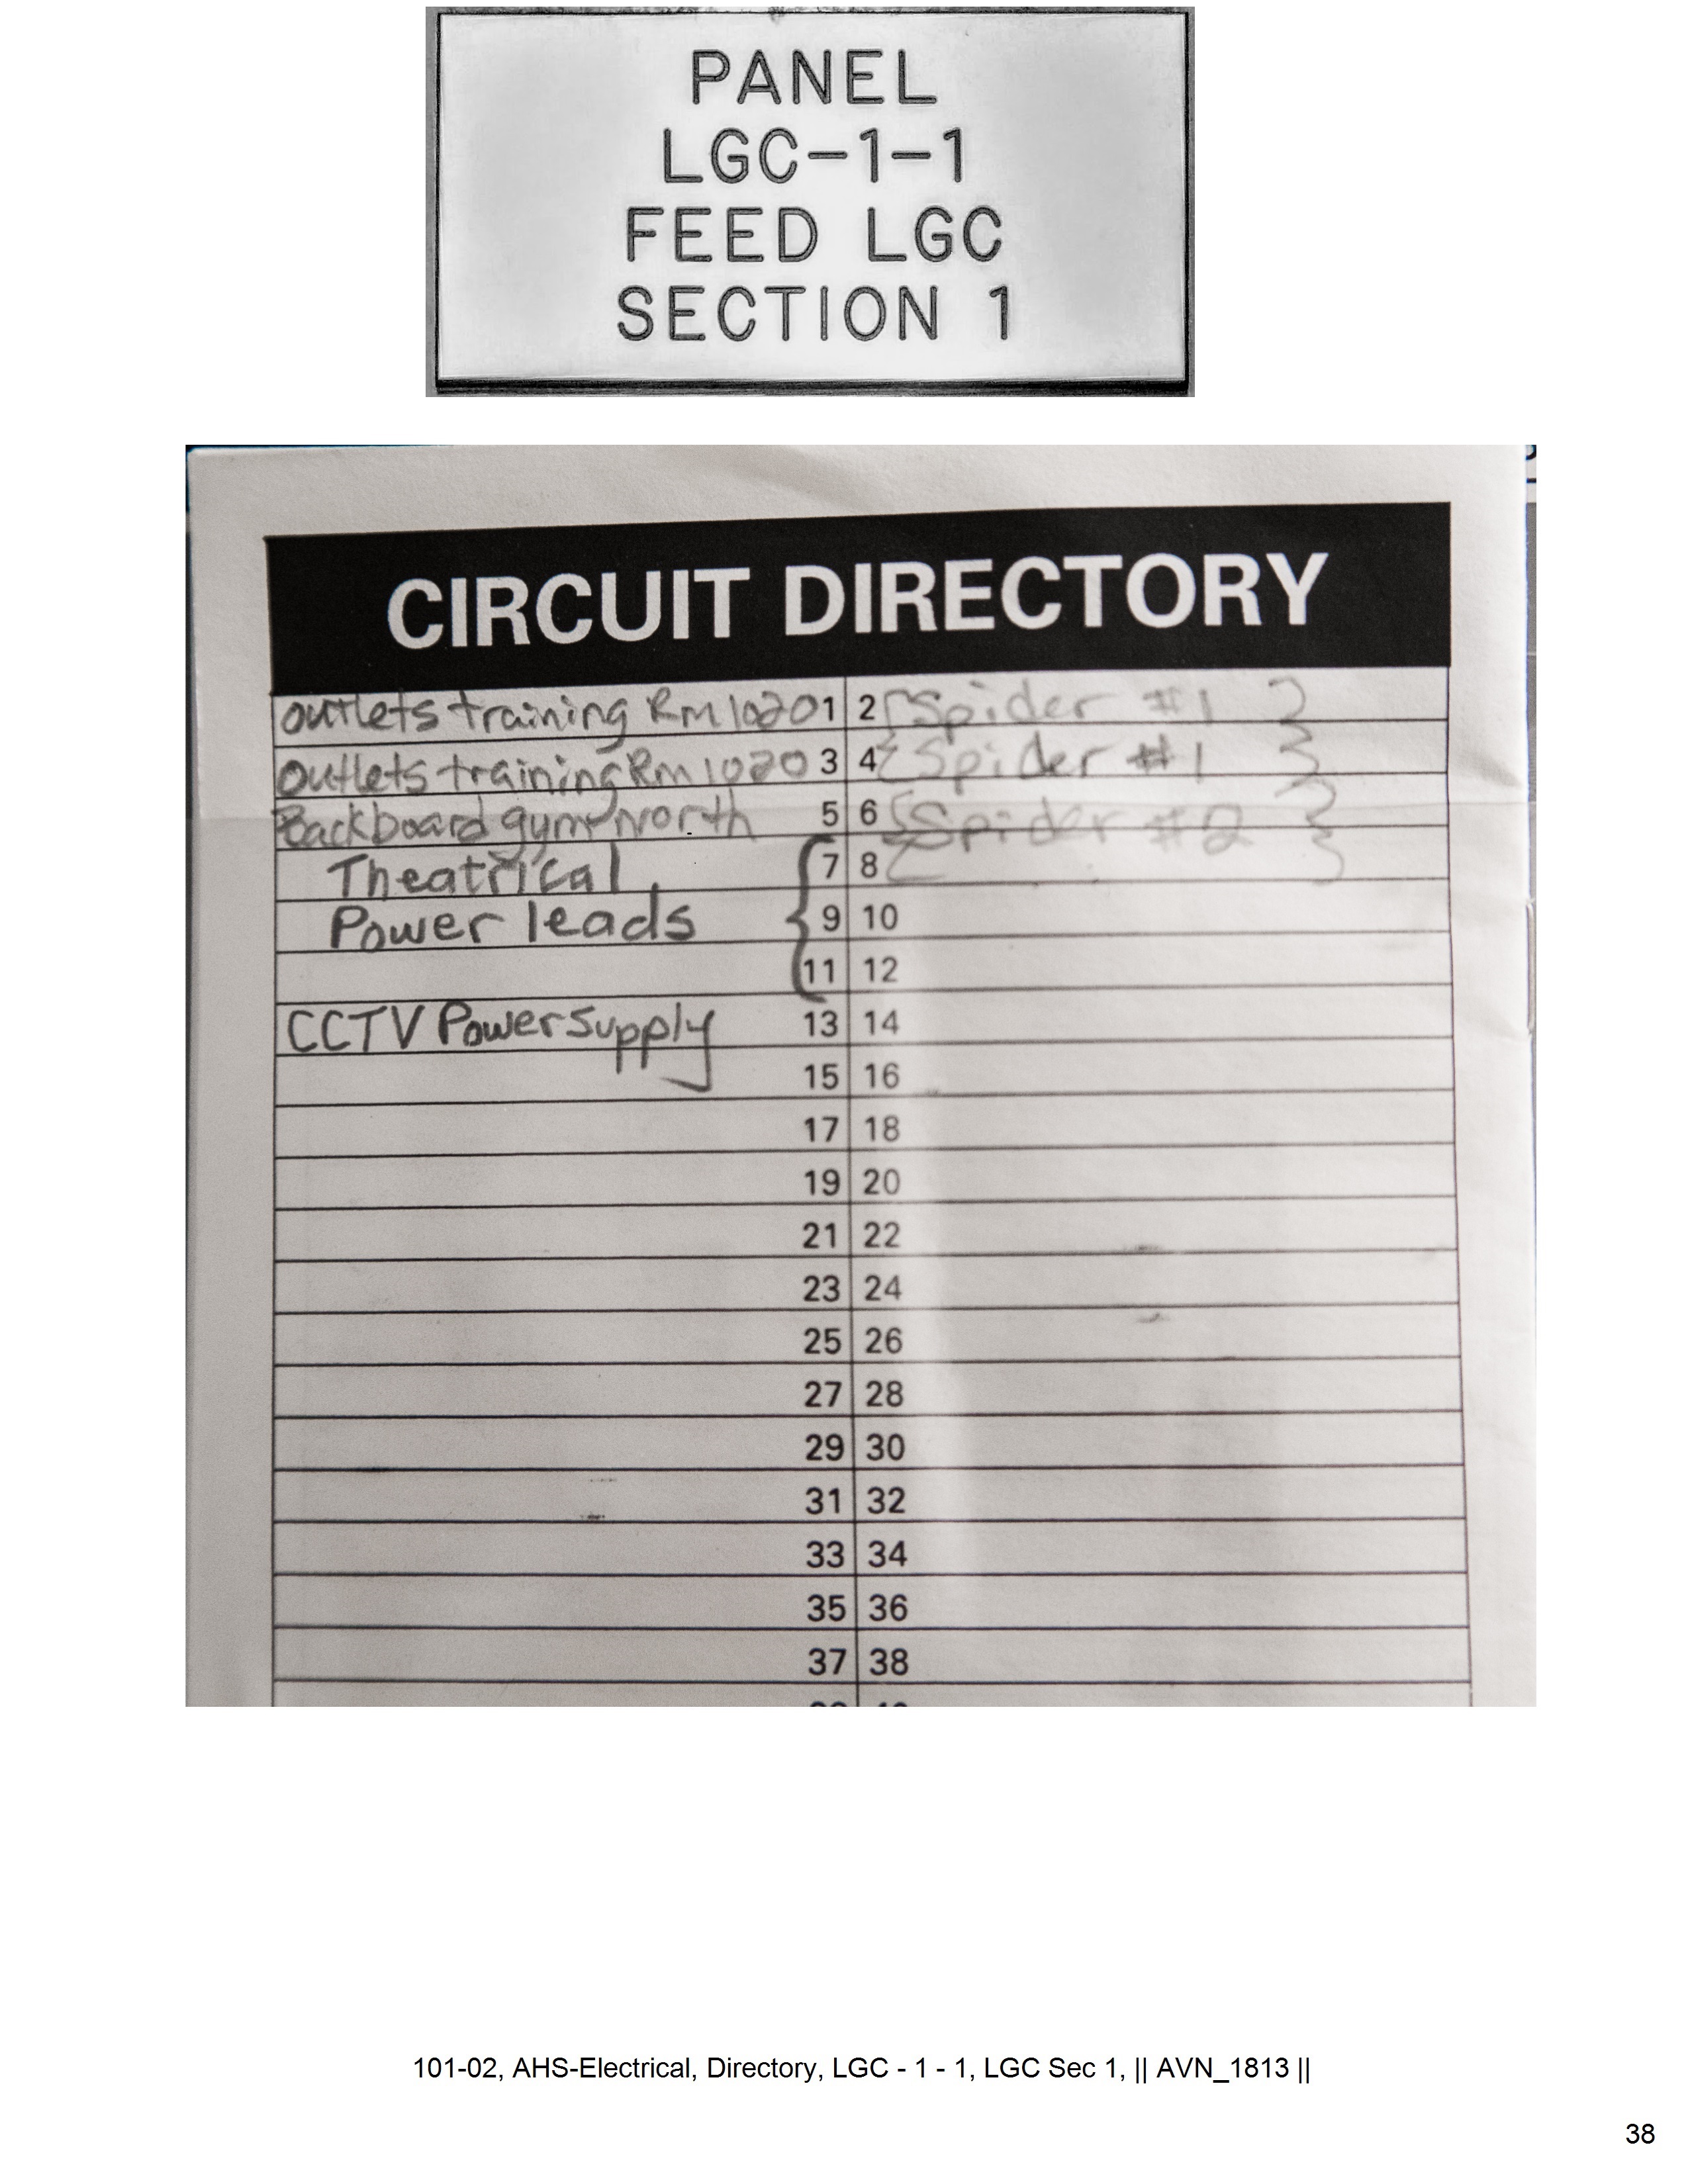 PANEL
LGC-1-1
FEED LGC
SECTION 1
CIRCUIT DIRECTORY
outlets training Rm 1020 1 2 {Spider #1 }
outlets training Rm 1020 3 4 {Spider #1 }
Backboard gym North 5 6 {Spider #2 }
Theatrical { 7 8 { }
Power leads { 9 10
{ 11 12
CCTV Power Supply 13 14
15 16
17 18
19 20
21 22
23 24
25 26
27 28
29 30
31 32
33 34
35 36
37 38
101-02, AHS-Electrical, Directory, LGC - 1 - 1, LGC Sec 1, || AVN_1813 ||
38